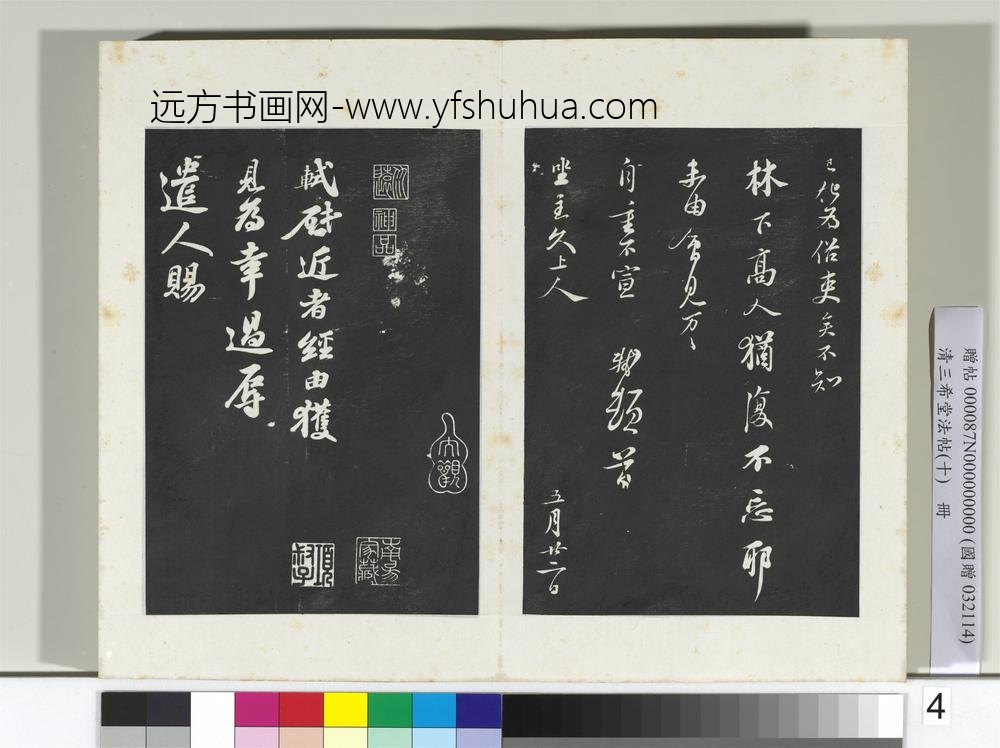 远方书画网-www.yfshuhua.com
已化為俗吏矣不知
林下高人猶復不忘耶
未由會見万〻
自重不宣 軾頓首
坐主久上人 五月廿二日
神品
大觀
項
家藏
軾啟近者經由獲
見為幸過辱
遣人賜
贈帖 000087N000000000 (國贈 032114)
清三希堂法帖(十) 冊
4